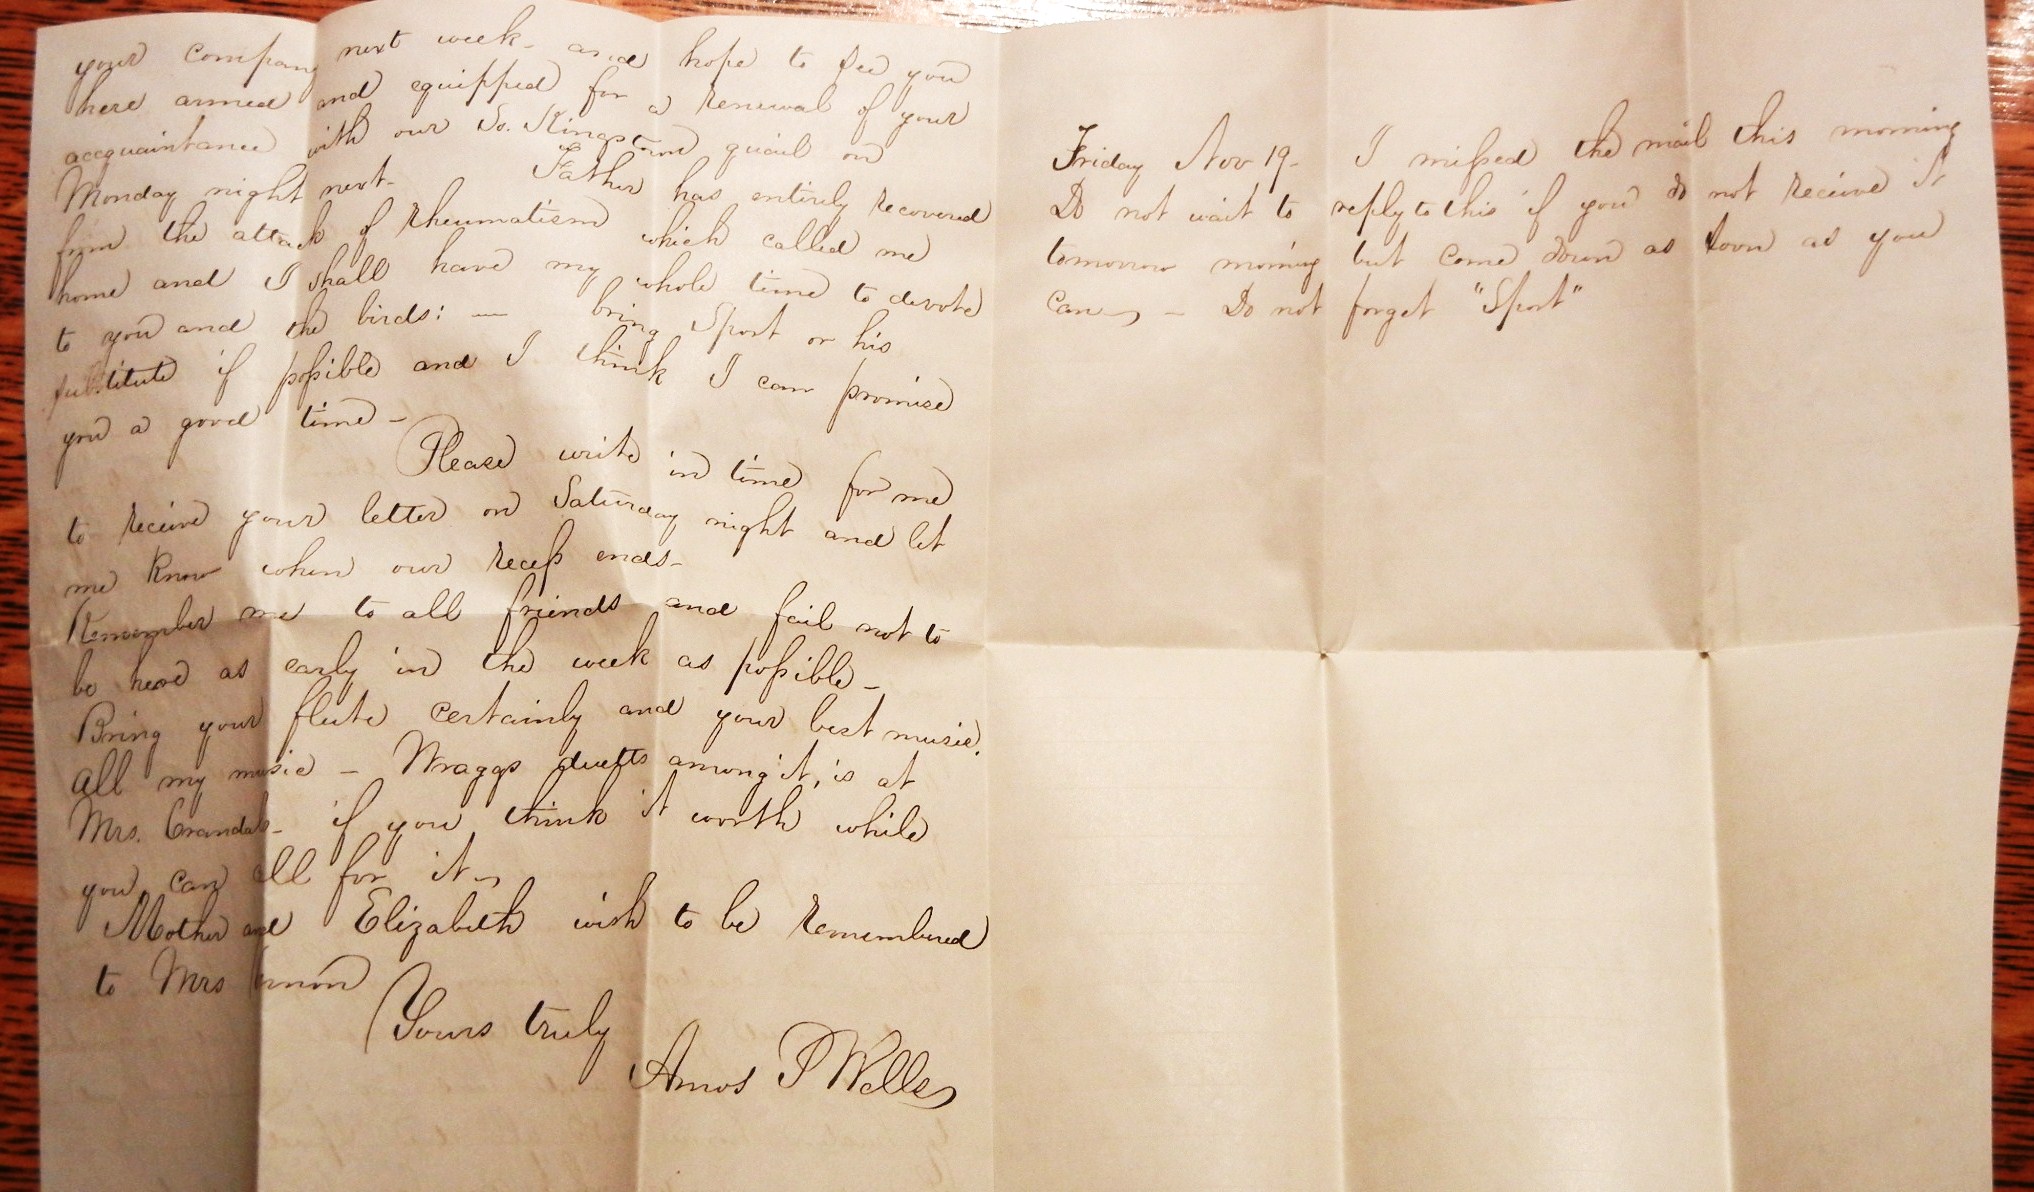 your company next week - and hope to see you
here armed and equipped for a renewal of your
accquaintance with our So. Kingstown quail on
Monday night next - Father has entirely recovered
from the attack of rheumatism which called me
home and I shall have my whole time to devote
to you and the birds: — bring Sport or his
substitute if possible and I think I can promise
you a good time -
Please write in time for me
to receive your letter on Saturday night and let
me know when our recess ends -
Remember me to all friends and fail not to
be here as early in the week as possible -
Bring your flute certainly and your best music.
All my music - Wraggs duetts among it, is at
Mrs. Crandals - if you think it worth while
you can call for it -
Mother and Elizabeth wish to be remembered
to Mrs
Yours truly
Amos P Wells
Friday Nov 19 - I missed the mail this morning
Do not wait to reply to this if you do not receive it
tomorrow morning but come down as soon as you
can - Do not forget "Sport"